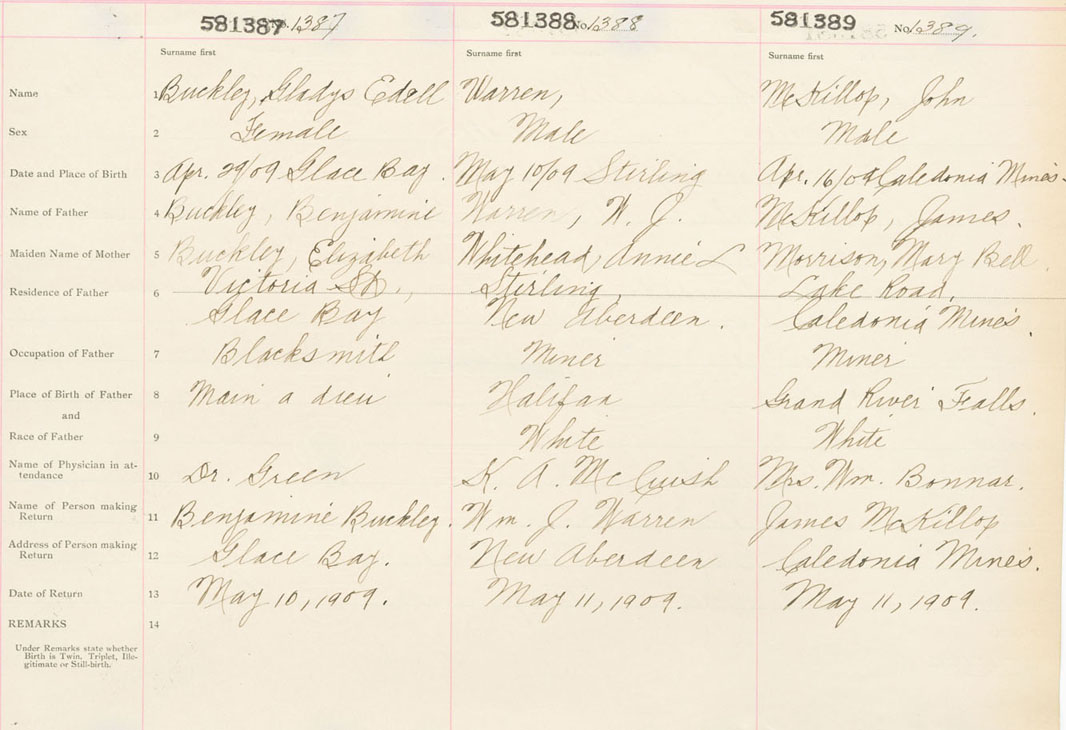 581387 No. 1387 581388 No. 1388 581389 No. 1389.
Surname first Surname first Surname first
Name 1 Buckley, Gladys Edell Warren, McKillop, John
Sex 2 Female Male Male
Date and Place of Birth 3 Apr. 29/09 Glace Bay. May 10/09 Stirling Apr. 16/09 Caledonia Mines
Name of Father 4 Buckley, Benjamine Warren, W. J. McKillop, James.
Maiden Name of Mother 5 Buckley, Elizabeth Whitehead, Annie L Morrison, Mary Bell.
Residence of Father 6 Victoria St., Stirling, Lake Road,
Glace Bay New Aberdeen. Caledonia Mines.
Occupation of Father 7 Blacksmith Miner Miner
Place of Birth of Father 8 Main a dieu Halifax Grand River Falls.
and
Race of Father 9 White White
Name of Physician in at-
tendance 10 Dr. Green K. A. McCuish Mrs. Wm. Bonnar.
Name of Person making
Return 11 Benjamine Buckley. Wm. J. Warren James McKillop
Address of Person making
Return 12 Glace Bay. New Aberdeen Caledonia Mines.
Date of Return 13 May 10, 1909. May 11, 1909. May 11, 1909.
REMARKS 14
Under Remarks state whether
Birth is Twin, Triplet, Ille-
gitimate or Still-birth.